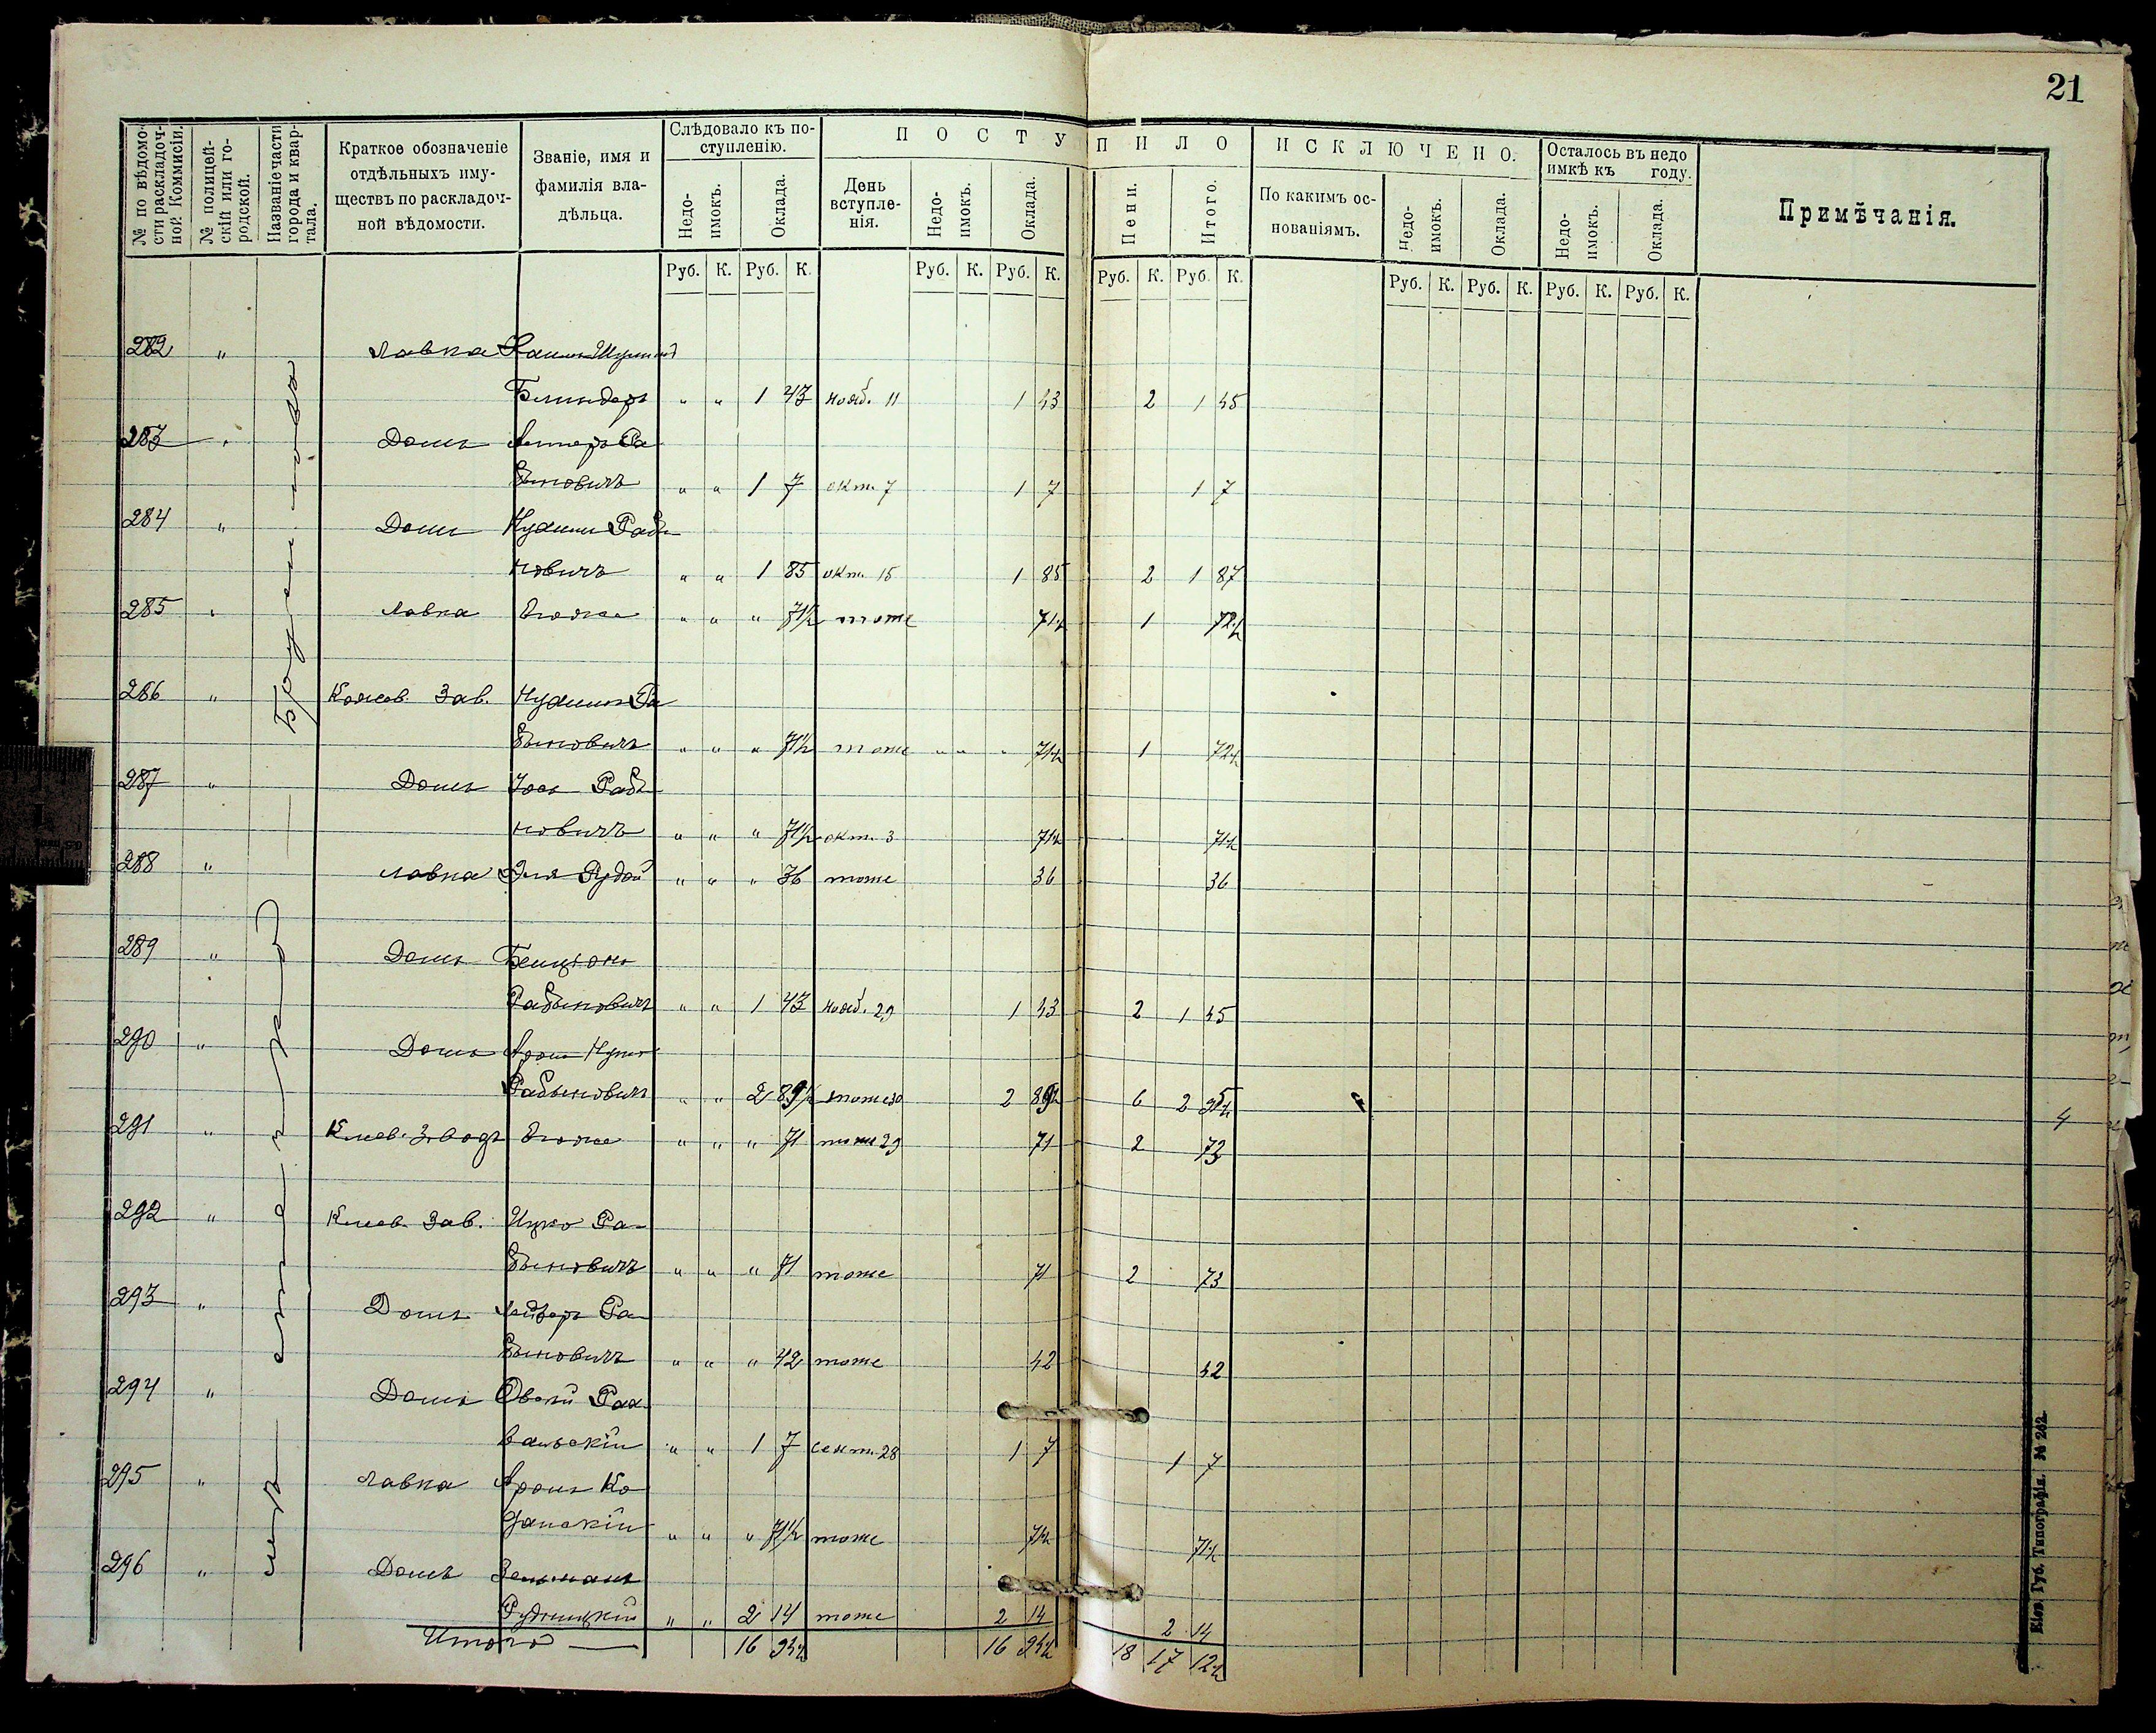 21
№ по вѣдомо-
сти раскладоч-
ной Коммисіи.
№ полицей-
скій или го-
родской.
Названіе части
города и квар-
тала.
Краткое обозначеніе
отдѣльныхъ иму-
ществъ по раскладоч-
ной вѣдомости.
Званіе, имя и
фамилія вла-
дѣльца.
Слѣдовало къ по-
ступленію.
Недо-
имокъ.
Оклада.
ПОСТУПИЛО
День
вступле-
нія.
Недо-
имокъ.
Оклада.
Пени.
Итого.
ИСКЛЮЧЕНО.
По какимъ ос-
нованіямъ.
Недо-
имокъ.
Оклада.
Осталось въ недо
имкѣ къ году.
Недо-
имокъ.
Оклада.
Примѣчанія.
Руб. К. Руб. К. Руб. К. Руб. К. Руб. К. Руб. К. Руб. К. Руб. К. Руб. К. Руб. К.
282 " Лавка
" " 1 43 нояб. 11 1 43 2 1 45
283 " Домъ Ра
биновичъ " " 1 7 окт. 7 1 7 1 7
284 " Домъ Раби
новичъ " " 1 85 окт. 15 1 85 2 1 87
285 " Лавка Онъ же " " " 71½ тоже 71½ 1 72½
286 " Кожев. Зав. Ра
биновичъ " " " 71½ тоже " " " 71½ 1 72½
287 " Домъ Раби
новичъ " " " 71½ окт. 3 71½ 71½
288 " Лавка Эля Рудой " " " 36 тоже 36 36
289 " Домъ Бенціонъ
Рабиновичъ " " 1 43 нояб. 29 1 43 2 1 45
290 " Домъ Аронъ
Рабиновичъ " " 2 89½ тоже 30 2 89½ 6 2 95½
291 " Кожев. Заводъ Онъ же " " " 71 тоже 29 71 2 73
4
292 " Кожев. Зав. Ицко Ра-
биновичъ " " " 71 тоже 71 2 73
293 " Домъ Лейзеръ Ра-
биновичъ " " " 42 тоже 42 42
294 " Домъ Овсей
" " 1 7 сент. 28 1 7 1 7
295 " Лавка Аронъ Ко
" " " 71½ тоже 71½ 71½
296 " Домъ Зельманъ
Рудницкій " " 2 14 тоже 2 14 2 14
Итого 16 94½ 16 94½ 18 17 12½
Кіев. Губ. Типографія. № 262